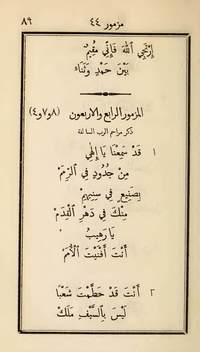 مزمور ٤٤ ٨٩
إِرْتَجِي ٱللهَ فَإِنِّي مُقِيمْ
بَيْنَ حَمْدٍ وَثَنَاءْ
المزمور الرابع والاربعون (٨و٧و٤)
ذكر مراحم الرب السالفة
١ قَدْ سَمِعْنَا يَا إِلٰهِي
مِنْ جُدُودٍ فِي ٱلرِّمَمْ
بِصَنِيعٍ فِي سِنِيهِمْ
مِنْكَ فِي دَهْرِ ٱلْقِدَمْ
يَا رَهِيبُ
أَنْتَ أَفْنَيْتَ ٱلْأُمَمْ
٢ أَنْتَ قَدْ حَطَّمْتَ شَعْبًا
لَيْسَ بِٱلسَّيْفِ مَلَكْ